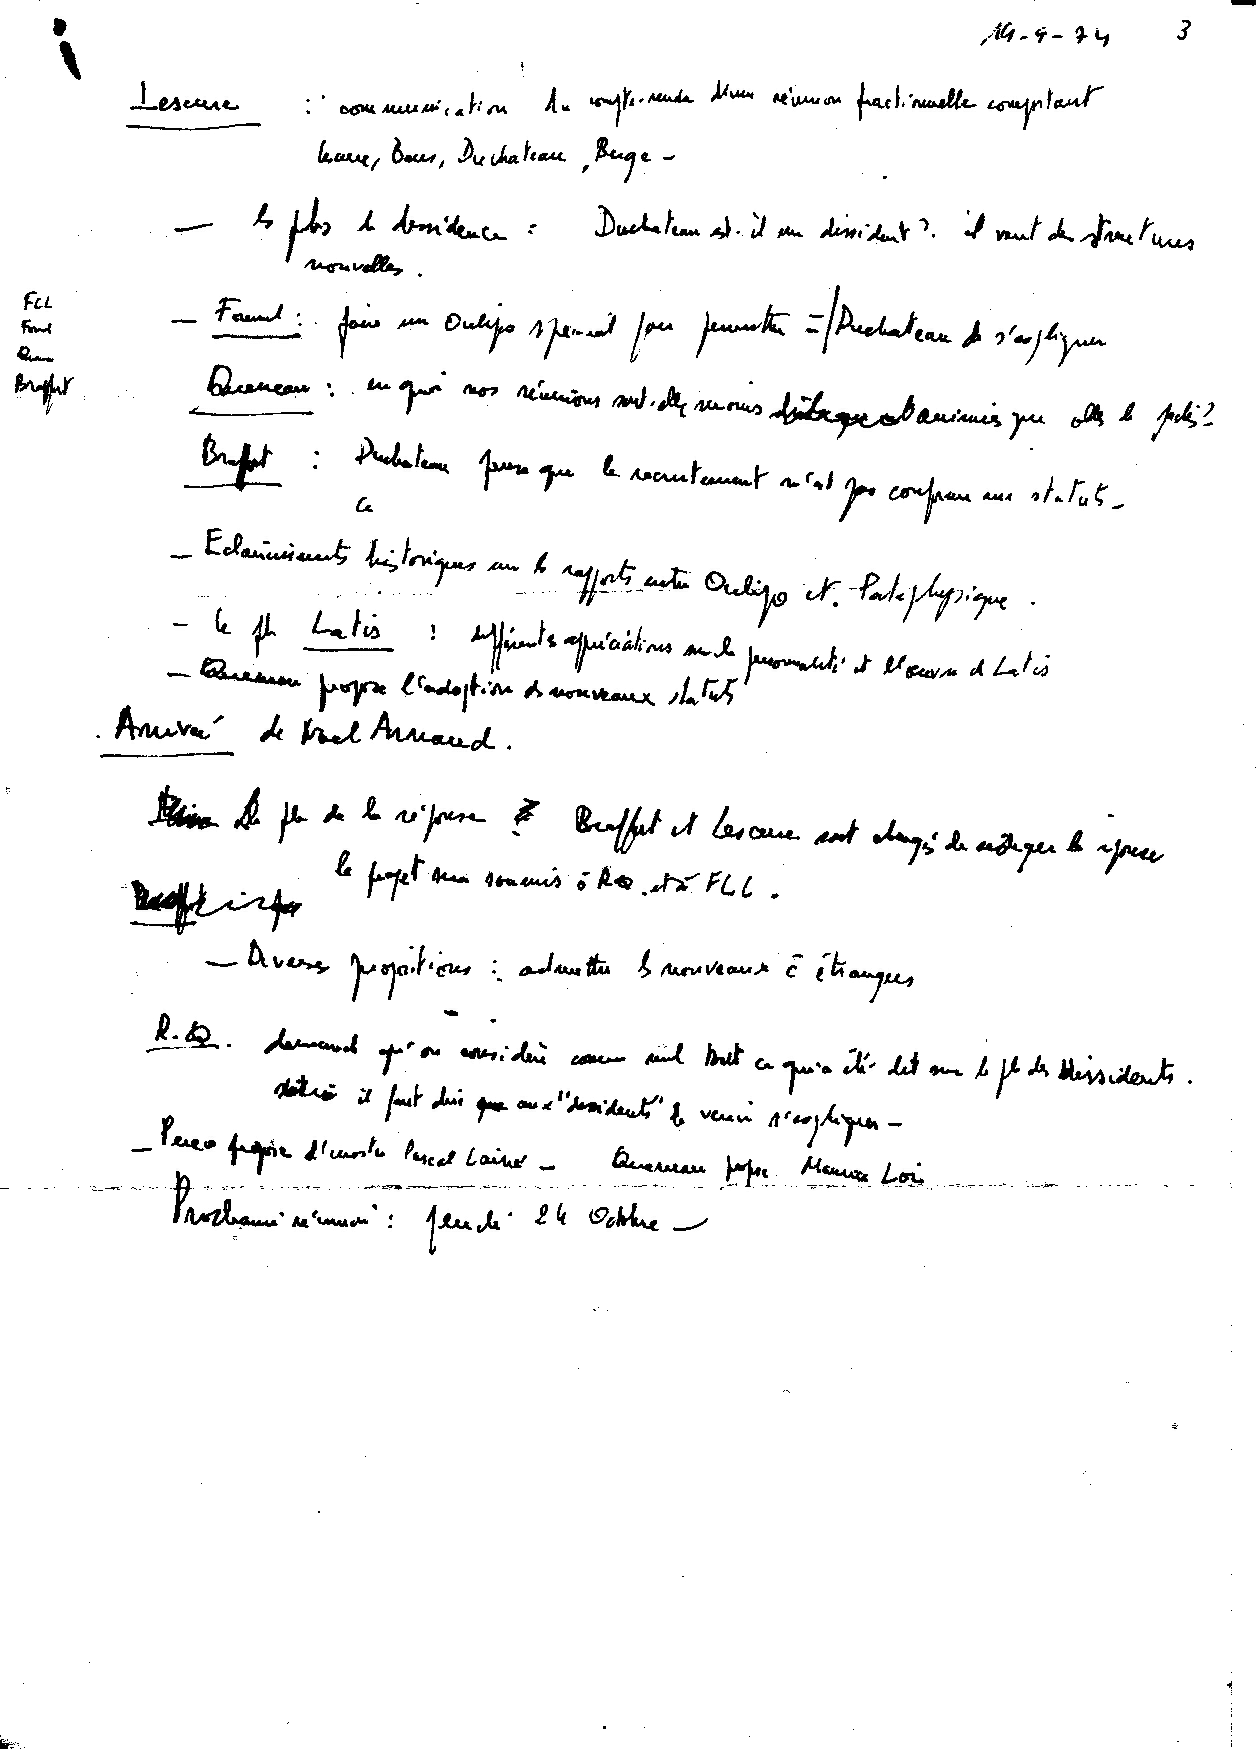 19-9-74 3
Lescure : communication du compte-rendu d'une réunion fractionnelle comportant
Bens, Duchateau, Berge -
— le pb de dissidence : Duchateau est-il un dissident ? il veut des structures
nouvelles.
FCL
— Fournel : faire un Oulipo spécial pour permettre à Duchateau de s'expliquer
Braffort
Queneau : en quoi nos réunions sont-elles moins animées que celles de jadis ?
Braffort : Duchateau pense que le recrutement n'est pas conforme aux statuts -
Ce
— Eclaircissements historiques sur les rapports entre Oulipo et Pataphysique .
- le pb Latis : différentes appréciations sur la personnalité et l'œuvre de Latis
— Queneau propose l'adoption de nouveaux statuts
. Arrivée de Noel Arnaud .
Le pb de la réponse : Braffort et Lescure sont chargés de rédiger la réponse
le projet sera soumis à RQ et à FLL .
— Diverses propositions : admettre les nouveaux étrangers
R.Q. demande qu'on considère comme nul tout ce qui a été dit sur le pb des Dissidents .
il faut dire que aux "dissidents" de venir s'expliquer —
— Perec propose d'inviter Pascal Lainé — Queneau propose Maurice Loi
Prochaine réunion : jeudi 24 Octobre —